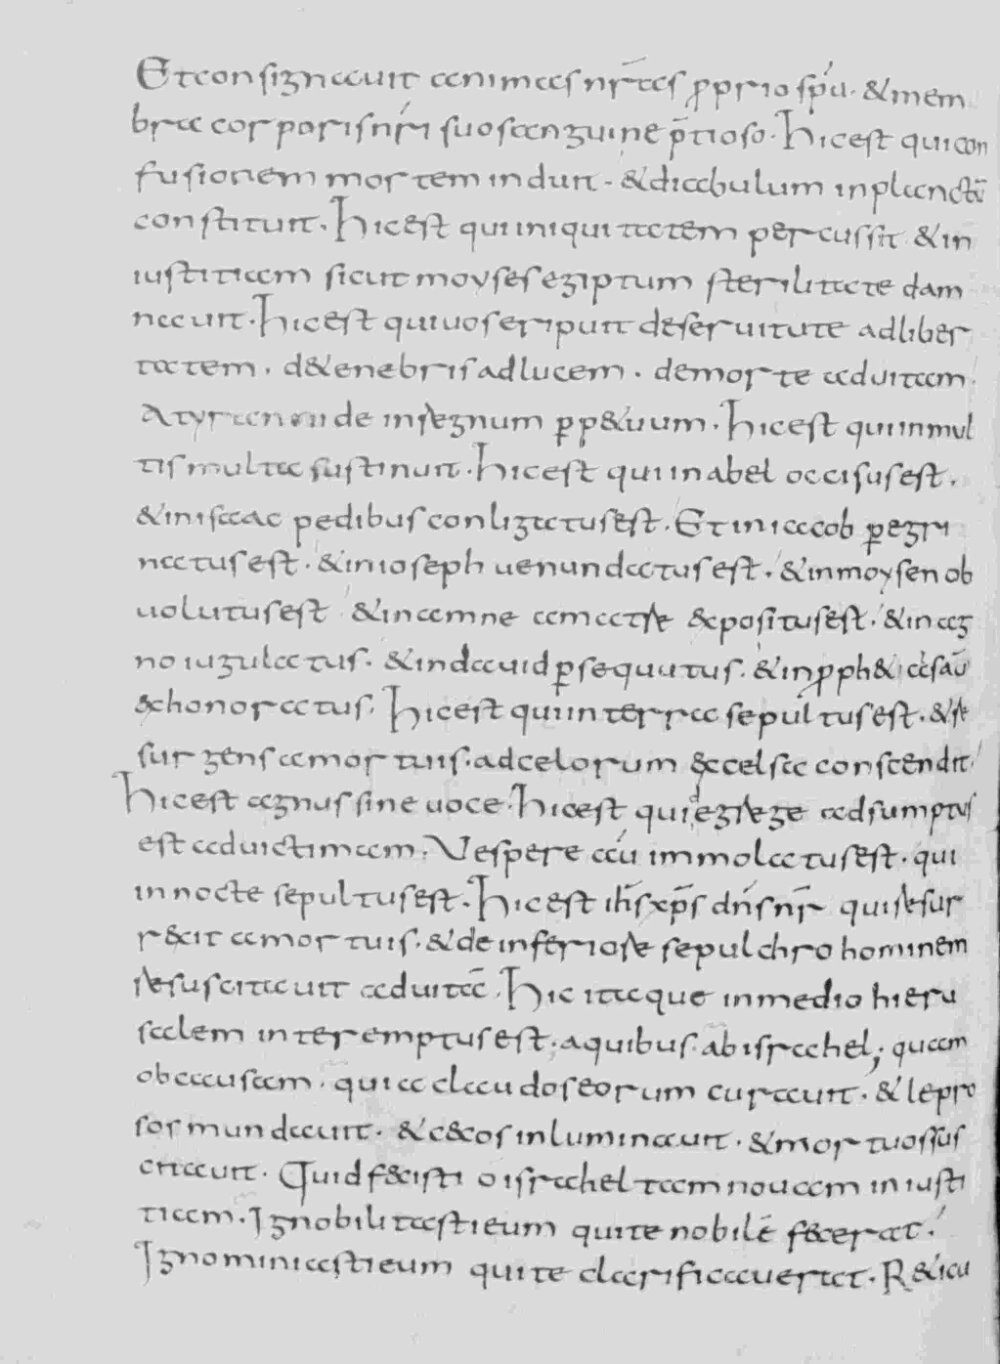 Et consignauit animas nr̄as ꝓprio sp̄u. & mem
bra corporis nr̄i suo sanguine p̄tioso. Hic est qui con
fusionem mortem induit. & diabulum in planctū
constituit. Hic est qui iniquitatem percussit & in
iustitiam sicut moyses egiptum sterilitate dam
nauit. Hic est qui uos eripuit de seruitute ad liber
tatem. de tenebris ad lucem. de morte ad uitam.
A tyrannide in regnum ꝑp&uum. Hic est qui in mul
tis multa sustinuit. Hic est qui in abel occisus est.
& in isaac pedibus conligatus est. Et in iacob ꝑegri
natus est. & in ioseph uenundatus est. & in moysen ob
uolutus est & in amne a matre expositus est. & in ag
no iugulatus. & in dauid ꝑsequutus. & in ꝓph&
exhonoratus. Hic est qui in terra sepultus est. & re
surgens a mortuis. ad celorum excelsa conscendit.
Hic est agnus sine uoce. Hic est qui e grege adsumptus
est ad uictimam. Vespere au immolatus est. qui
in nocte sepultus est. Hic est ih̄s xp̄s dn̄s nr̄ qui resur
rexit a mortuis. & de inferiore sepulchro hominem
resuscitauit ad uitā. Hic itaque in medio hieru
salem interemptus est. a quibus. ab israhel; quam
ob causam. quia claudos eorum curauit. & lepro
sos mundauit. & cecos inluminauit. & mortuos sus
citauit. Quid fecisti o israhel tam nouam iniusti
tiam. Ignobilitasti eum qui te nobilē fecerat.
Ignominiasti eum qui te clarificauerat. R